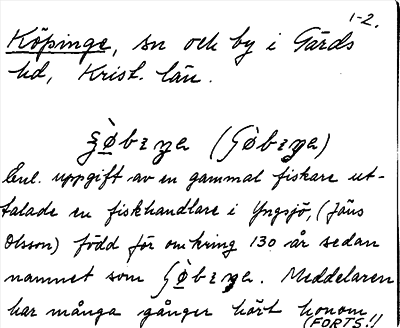 1-2.
Köpinge, sn och by i Gärds
hd, Krist. län.
Enl. uppgift av en gammal fiskare ut-
talade en fiskhandlare i Yngsjö, (Jäns
Olsson) född för omkring 130 år sedan
namnet som ʃø̀bɪŋa. Meddelaren
har många gånger hört honom
(FORTS.!)